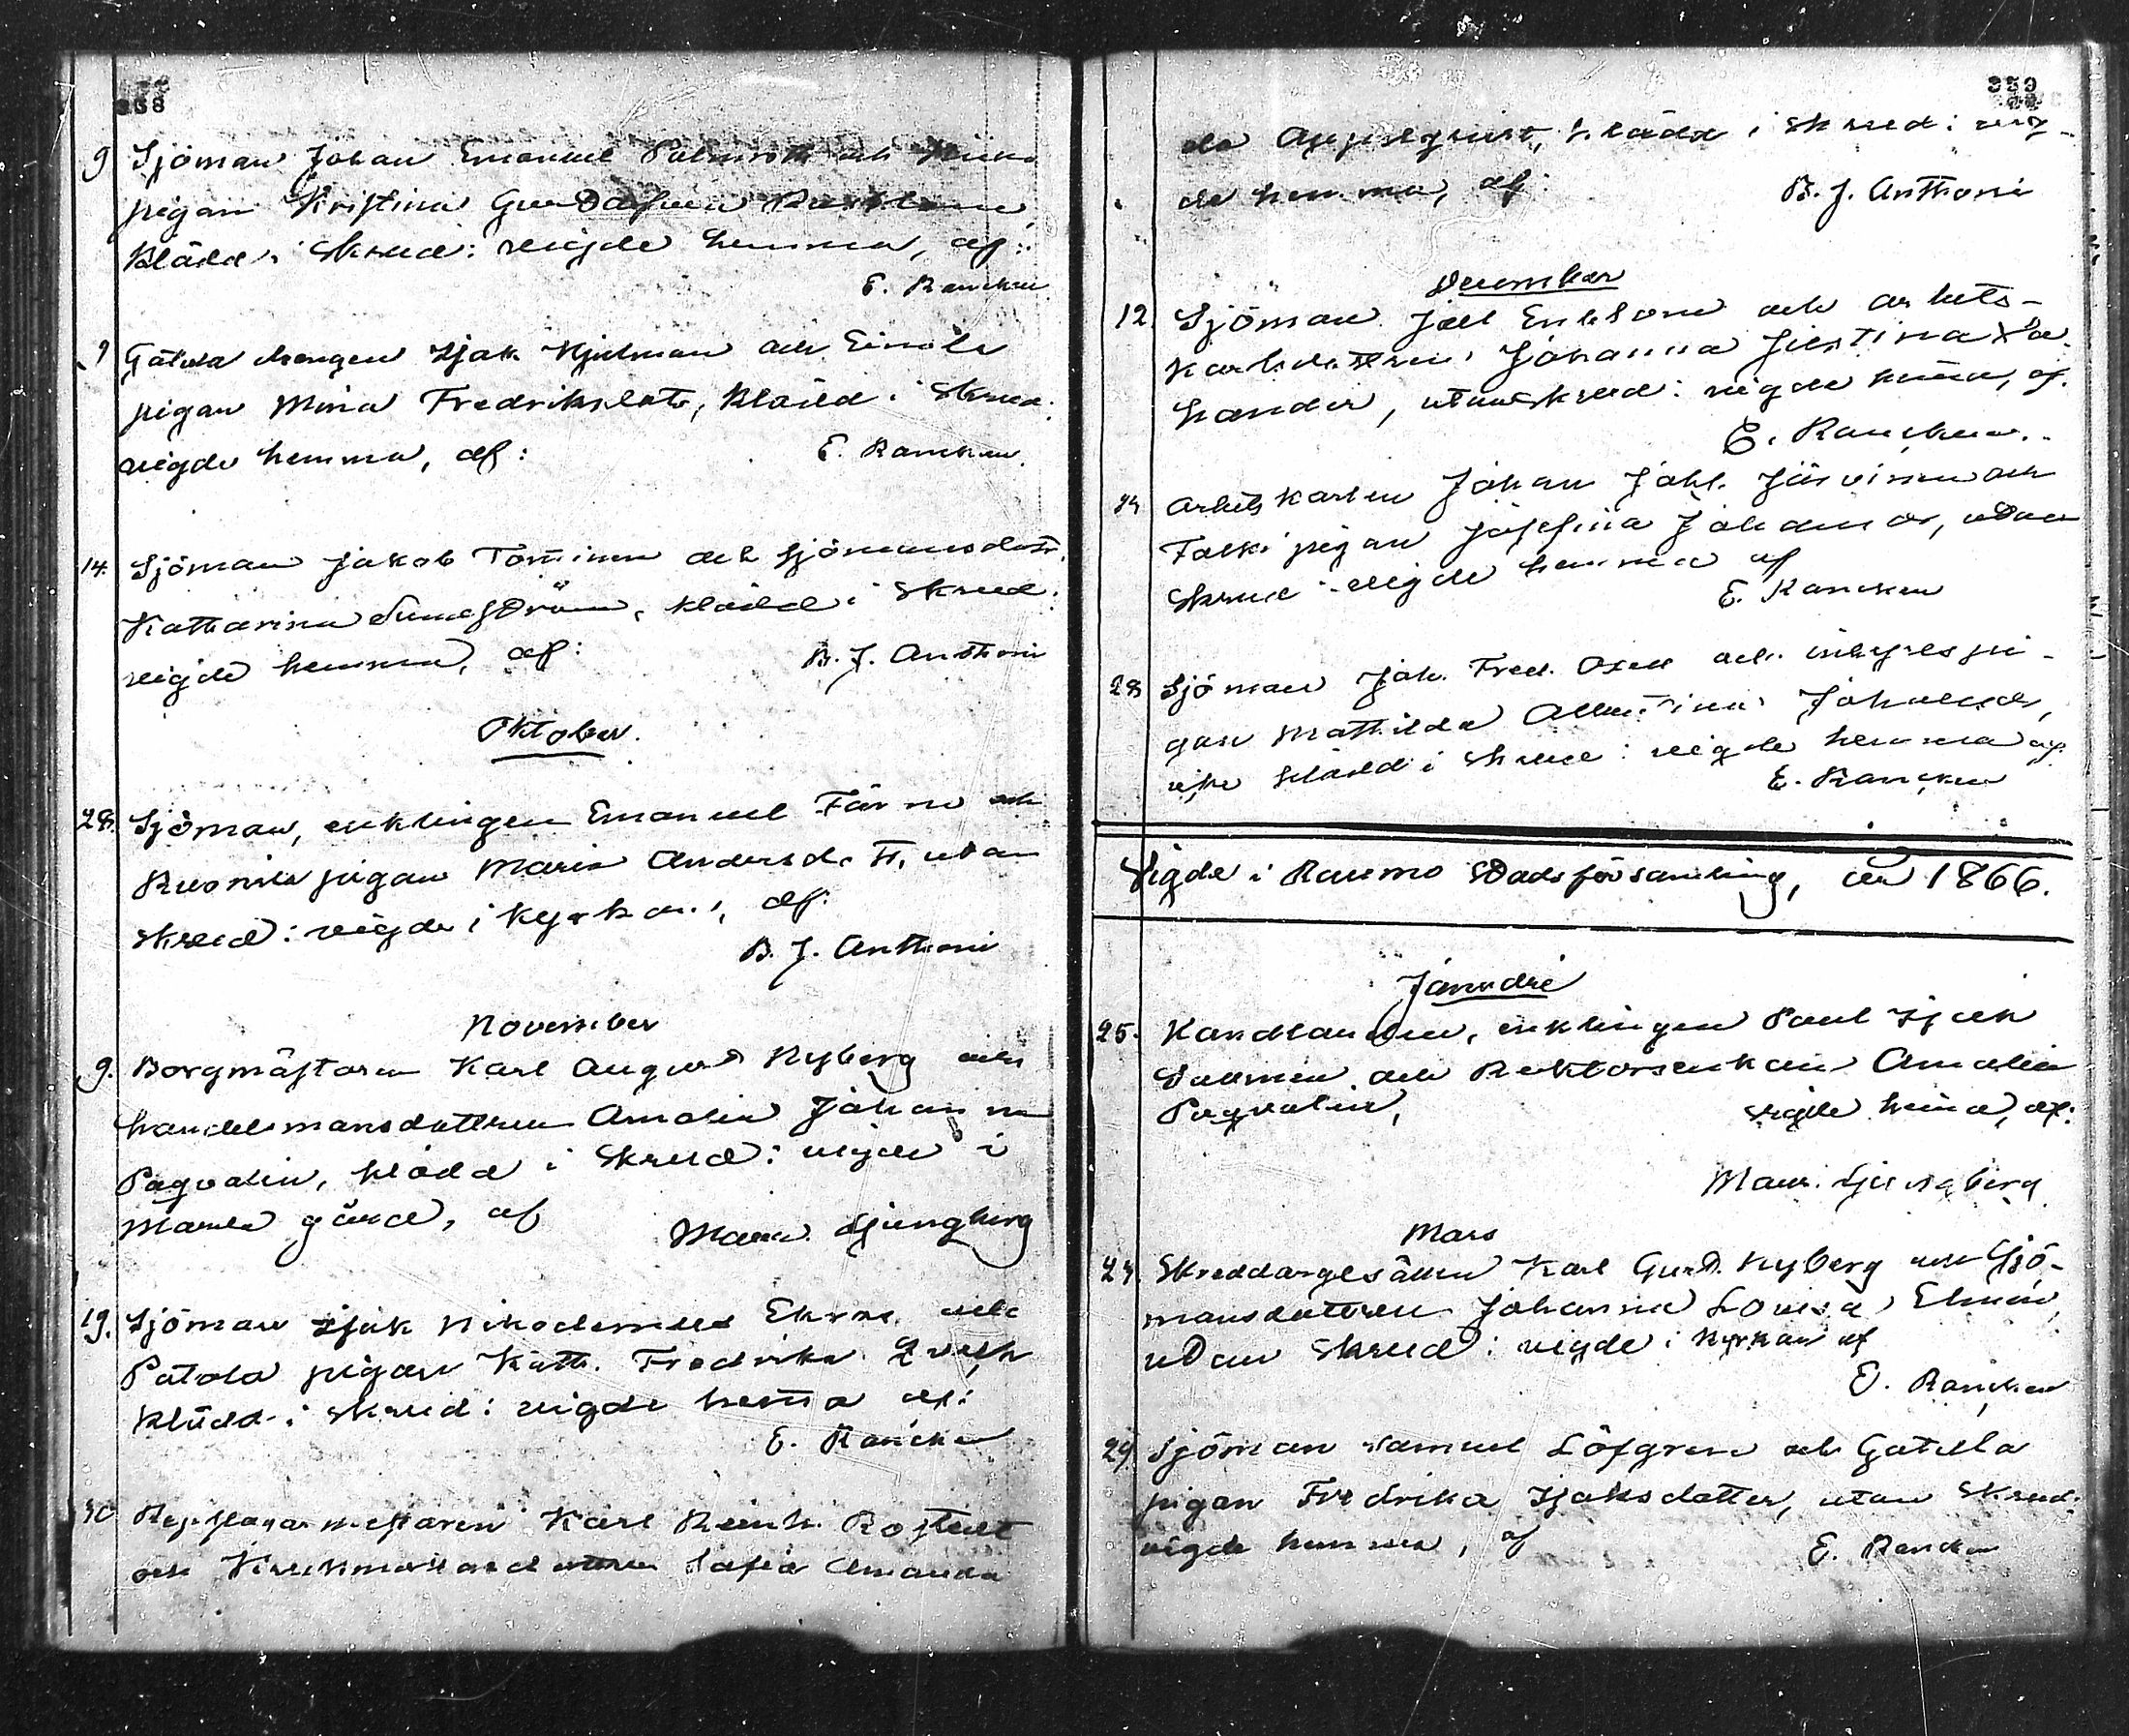 358
9 Sjöman Johan Emanuel och
pigan Kristina Gustafva
klädd i skrud: vigde hemma, af:
E. Rancken
9 Gålda drengen Isak Hjelman och Eimola
pigan Mina Fredriksdotr, klädd i skrud:
vigde hemma, af:
E. Rancken
14. Sjöman Jakob Tominen och sjömansdottr.
Katharina Sundström, klädd i skrud:
vigde hemma, af:
B. J. Anthoni
Oktober.
28. Sjöman, enklingen Emanuel Färm och
pigan Maria Andersd. H, utan
skrud: vigde i kyrkan, af:
B. J. Anthoni
November
9. Borgmästaren Karl August Nyberg och
handelsmansdottren Amalia Johanna
Pagvalin, klädd i skrud: vigde i
gård, af
Maur. Ljungberg
19. Sjöman Isak Nikodemus och
Patola pigan Kath. Fredrika
klädd i skrud: vigde hema af:
E. Rancken
30 Repslagarmestaren Karl Reinh. Rostedt
och Sofia Amanda
359
da Appelqvist, klädd i skrud: vig-
de hemma, af:
B. J. Anthoni
December
12. Sjöman Joel Erikson och arbets-
karlsdottren Johanna Justina
utan skrud: vigde hemma, af.
E. Rancken.
14 Arbetskarlen Johan Jak. Järvinen och
pigan Josefina Johansdr, utan
skrud: vigde hemma af
E. Rancken
28 Sjöman Joh. Fred. Oxell och inhyses pi-
gan Mathilda Albertina Johansdr,
icke klädd i skrud: vigde hemma af.
E. Rancken
Vigde i Raumo Stadsförsamling, år 1866.
Januari
25. enklingen Paul Isak
Salomin och Rektorsenkan Amalia
Pagvalin, vigde hema, af:
Maur. Ljungberg
Mars
24. Skreddargesällen Karl Gust. Nyberg och sjö-
mansdottren Johanna Lovisa Elmén,
utan skrud: vigde i kyrkan af
E. Rancken
29 Sjöman Samuel Löfgren och
pigan Fredrika Isaksdotter, utan skrud:
vigde hemma, af
E. Rancken